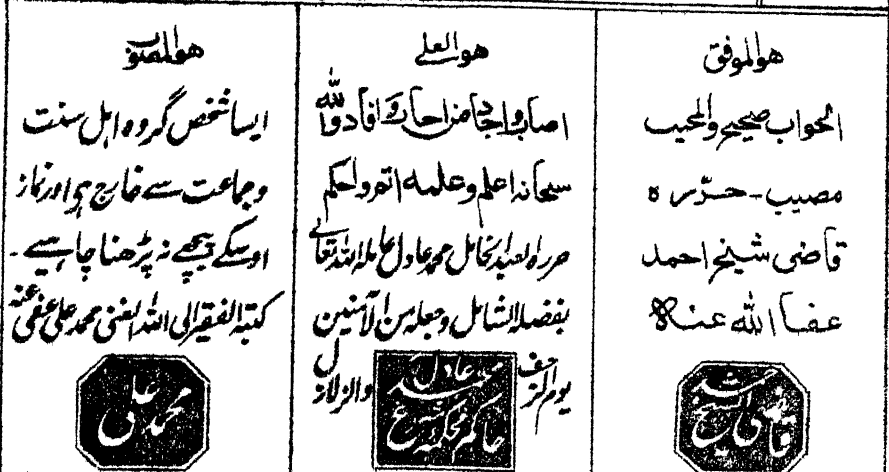 هو الموفق
الجواب صحیح والمجیب
مصیب۔ حرّرہ
قاضی شیخ احمد
عفا اللہ عنہ
هو العلی
اصاب واجاد من اجاب وافاد واللہ
سبحانہ اعلم وعلمہ اتم واحکم
حررہ العبد الخامل محمد عادل عاملہ اللہ تعالی
بفضلہ الشامل وجعلہ من الآمنین
یوم الزحف والزلازل
محمد عادل
حاکم محکمہ شرع
هو المصوب
ایسا شخص گروہ اہل سنت
وجماعت سے خارج ہو اور نماز
اوسکے پیچھے نہ پڑھنا چاہیے۔
کتبہ الفقیر الی اللہ الغنی محمد علی عفی عنہ
محمد علی